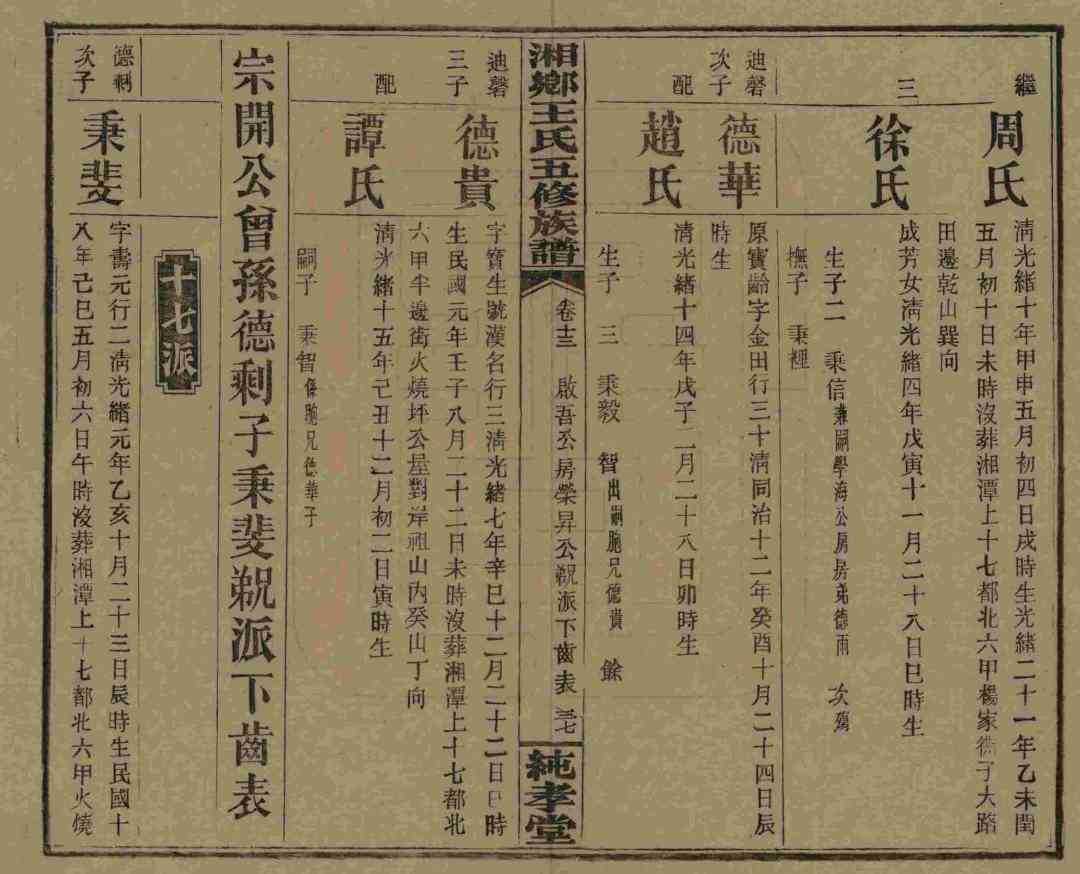 繼
周氏
清光緒十年甲申五月初四日戌時生光緒二十一年乙未閏
五月初十日未時沒葬湘潭上十七都北六甲楊家衝子大路
田邊乾山巽向
三
徐氏
成芳女清光緒四年戊寅十一月二十八日巳時生
生子二 秉信兼嗣學海公房房弟德雨 次殤
撫子 秉裡
迪磬
次子
德華
原寶齡字金田行三十清同治十二年癸酉十月二十四日辰
時生
配
趙氏
清光緒十四年戊子二月二十八日卯時生
生子 三 秉毅 智出嗣胞兄德貴 餘
湘鄉王氏五修族譜
卷十三 啟吾公房榮昇公毅派下齒表 三七
純孝堂
迪磬
三子
德貴
字寶生號漢名行三清光緒七年辛巳十二月二十二日巳時
生民國元年壬子八月二十二日未時沒葬湘潭上十七都北
六甲半邊街火燒坪公屋對岸祖山內癸山丁向
配
譚氏
清光緒十五年己丑十二月初二日寅時生
嗣子 秉智係胞兄德華子
宗開公曾孫德剩子秉斐毅派下齒表
十七派
德剩
次子
秉斐
字壽元行二清光緒元年乙亥十月二十三日辰時生民國十
八年己巳五月初六日午時沒葬湘潭上十七都北六甲火燒